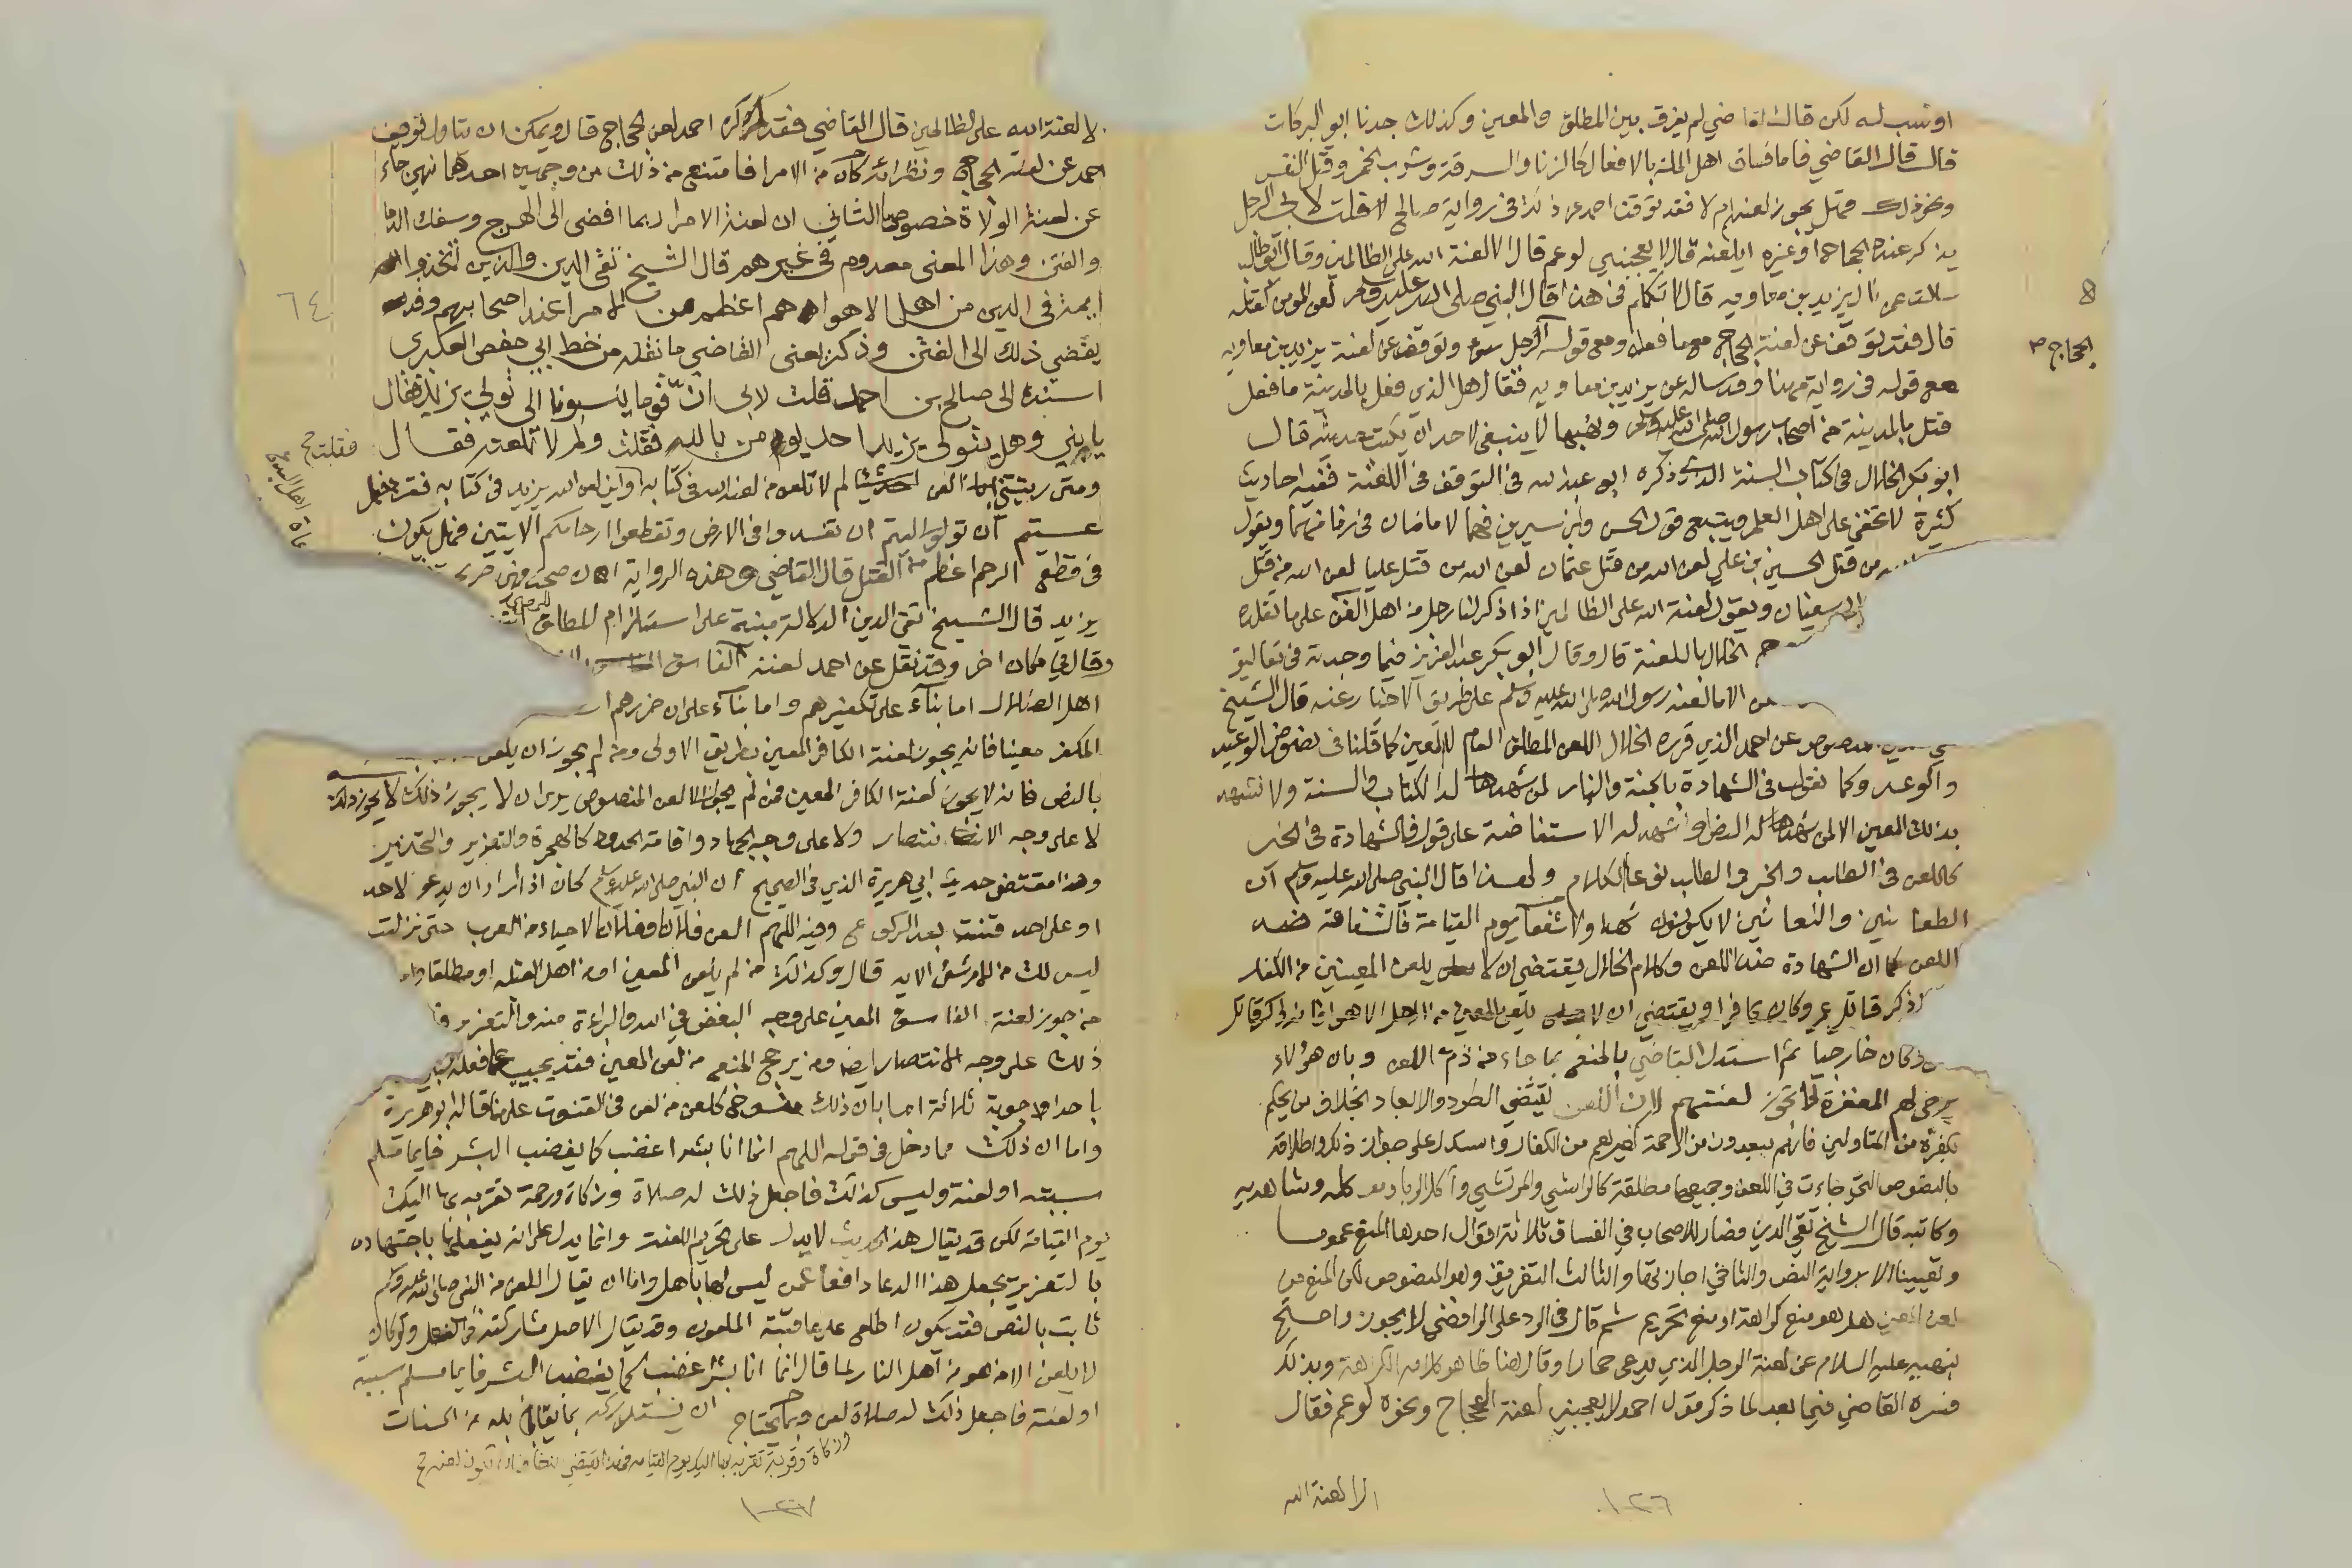 او نسب له لكن قال القاضي لم يفرق بين المطلق والمعين وكذلك جدنا ابو البركات
قال قال القاضي فاما فساق اهل الملة بالافعال كالزنا والسرقة وشرب الخمر وقتل النفس
ونحو ذلك فهل يجوز لعنهم لا فقد توقف احمد عن ذلك في رواية صالح قلت لابي الرجل
يذكر عنده الحجاج او غيره ايلعنه قال لا يعجبني لو عم قال الا لعنة الله على الظالمين وقال ابو طالب
سالت عن نال يزيد بن معاويه قال لا تكلم في هذا قال النبي صلى الله عليه وسلم لعن المومن كقتله
قال فقد توقف عن لعنة الحجاج مع ما فعله ومع قوله الرجل سوء وتوقف عن لعنة يزيد بن معاويه
الحجاج صح
مع قوله في رواية مهنا وقد ساله عن يزيد بن معاويه فقال هل الذي فعل بالمدينة ما فعل
قتل بالمدينة من اصحاب رسول الله صلى الله عليه وسلم ونهبها لا ينبغي لاحد ان يكتب حديثه قال
ابو بكر الخلال في كتاب السنة الذي ذكره ابو عبد الله في التوقف في اللعنة ففيه احاديث
كثيرة لا تخفى على اهل العلم ويتبع قول الحسن وابن سيرين فهما الامامان في زمانهما ويقول
من قتل الحسين بن علي لعن الله من قتل عثمان لعن الله من قتل عليا لعن الله من قتل
ابي سفيان ويقول لعنة الله على الظالمين اذا ذكر لنا رجل من اهل الفتن على ما تقلده
الخلال باللعنة قال وقال ابو بكر عبد العزيز فيما وجدته في تعاليق
الا من لعنه رسول الله صلى الله عليه وسلم على طريق الاخبار عنه قال الشيخ
المنصوص عن احمد الذي قرره الخلال اللعن المطلق العام لا المعين كما قلنا في نصوص الوعيد
والوعد وكما نقول في الشهادة بالجنة والنار لمن شهد لها الكتاب والسنة ولا نشهد
بذلك المعين الا لمن شهد له النص او شهد له الاستفاضة على قول فالشهادة في الخبر
كاللعن في الطلب والخبر والطلب نوعا الكلام ولهذا قال النبي صلى الله عليه وسلم ان
الطعانين واللعانين لا يكونون شهدا ولا شفعا يوم القيامة فالشفاعة ضد
اللعن كما ان الشهادة ضد اللعن وكلام الخلال يقتضي ان لا يلعن المعينين من الكفار
ذكر قاتل عمر وكان كافرا ويقتضي ان لا يلعن المعين من اهل الاهواء ذكر قاتل
وكان خارجيا ثم استدل القاضي بالمنع بما جاء من ذم اللعن وبان هؤلاء
يرجى لهم المغفرة لا تجوز لعنتهم لان اللعن يقتضي الطرد والابعاد بخلاف من يحكم
بكفره من المتاولين فانهم مبعدون من الرحمة كغيرهم من الكفار واستدل على جواز ذلك واطلاقه
بالنصوص التي جاءت في اللعن وجميعها مطلقة كالراشي والمرتشي وآكل الربا وموكله وشاهديه
وكاتبه قال الشيخ تقي الدين فصار للاصحاب في الفساق ثلاثة اقوال احدها المنع عموما
وتعيينا الا برواية النص والثاني اجازتها والثالث التفريق وهو المنصوص لكن المنع من
لعن المعين هل هو منع كراهة او منع تحريم ثم قال في الرد على الرافضي لا يجوز واحتج
بنهيه عليه السلام عن لعنة الرجل الذي يدعى حمارا وقال هنا ظاهر كلامه الكراهة وبذلك
فسره القاضي فيما بعد لما ذكر قول احمد لا يعجبني لعنة الحجاج ونحوه لو عم فقال
الا لعنة الله
١٠٢٦
الا لعنة الله على الظالمين قال القاضي فقد كره احمد لعن الحجاج قال ويمكن ان يتاول توقف
احمد عن لعنة الحجاج ونظرائه كان من الامرا فامتنع من ذلك من وجهين احدهما نهي جاء
عن لعنة الولاة خصوصا الثاني ان لعنة الامرا ربما افضى الى الهرج وسفك الدما
والفتن وهذا المعنى معدوم في غيرهم قال الشيخ تقي الدين والذين اتخذوا
ايمة في الدين من اهل الاهواء هم اعظم من الامرا عند اصحابهم وقد
٦٤
يفضي ذلك الى الفتن وذكر يعنى القاضي ما نقله من خط ابي حفص العكبري
اسنده الى صالح بن احمد قلت لابي ان قوما ينسبونا الى تولي يزيد فقال
يا بني وهل يتولى يزيد احد يومن بالله فقلت ولم لا تلعنه فقال
فقلت صح
ومتى رايتني العن احد شيئا لم لا تلعن من لعنه الله في كتابه واين لعن الله يزيد في كتابه فقرا فهل
عسيتم ان توليتم ان تفسدوا في الارض وتقطعوا ارحامكم الايتين فهل يكون
في قطع الرحم اعظم من القتل قال القاضي وهذه الرواية ان صحت فهي صريحة
يزيد قال الشيخ تقي الدين الدلالة مبنية على استلزام المطلق
وقال في مكان اخر وقد نقل عن احمد لعنة الفاسق
اهل الضلال اما بناء على تكفيرهم واما بناء على ان ضررهم
المكفر معينا فانه يجوز لعنة الكافر المعين بطريق الاولى ومن لم يجوز ان يلعن
بالنص فانه لا يجوز لعنة الكافر المعين فمن لم يجوز الا لعن المنصوص يرى ان لا يجوز ذلك
لا على وجه الانتصار ولا على وجه الجهاد واقامة الحدود كالهجرة والتعزير والتحذير
وهذا مقتضى حديث ابي هريرة الذي في الصحيح ان النبي صلى الله عليه وسلم كان اذا اراد ان يدعو لاحد
او على احد قنت بعد الركوع وفيه اللهم العن فلانا وفلانا لاحياء من العرب حتى نزلت
ليس لك من الامر شئ الايه قال وكذلك من لم يلعن المعين من اهل القبلة او مطلقا
من جوز لعنة الفاسق المعين على وجه البغض في الله والبراءة منه والتعزير
ذلك على وجه الانتصار ايضا ومن يرجح المنع من لعن المعين فقد يجيب عما فعله
باحد اجوبة ثلاثة اما بان ذلك منسوخ كلعن من لعن في القنوت على ما قاله ابو هريرة
واما ان ذلك مما دخل في قوله اللهم انما انا بشر اغضب كما يغضب البشر فايما مسلم
سببته او لعنته وليس كذلك فاجعل ذلك له صلاة وزكاة ورحمة تقربه بها اليك
يوم القيامة لكن قد يقال هذا الحديث لا يدل على تحريم اللعنة وانما يدل على انه يفعلها باجتهاده
بالتعزير يجعل هذا الدعاء دافعا عمن ليس لها باهل واما ان يقال اللعن من النبي صلى الله عليه وسلم
ثابت بالنص فقد يكون اطلع على عاقبة الملعون وقد يقال الاصل مشاركته في الفعل ولو كان
لا يلعن الا من هو من اهل النار لما قال انما انا بشر اغضب كما يغضب البشر فايما مسلم سببته
او لعنته فاجعل ذلك له صلاة
وزكاة وقربة تقربه بها اليك يوم القيامة
١٠٢٧